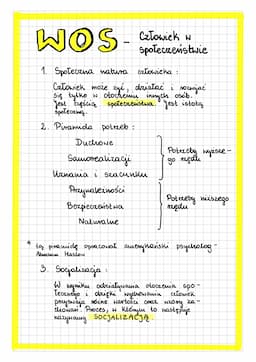 WOS - Człowiek w
społeczeństwie
1. Społeczna natura człowieka :
Człowiek może żyć, działać i rozwijać
się tylko w otoczeniu innych osób.
Jest częścią społeczeństwa. Jest istotą
społeczną.
2. Piramida potrzeb :
Duchowe
Samorealizacji
Uznania i szacunku
Potrzeby wyższe-
go rzędu
Przynależności
Bezpieczeństwa
Naturalne
Potrzeby niższego
rzędu
* tą piramidę opracował amerykański psycholog -
Abraham Maslow
3. Socjalizacja :
W wyniku oddziaływania otoczenia spo-
łecznego i dzięki wychowaniu człowiek
przyswaja różne wartości oraz wzory za-
chowań. Proces, w którym to następuje
nazywamy SOCJALIZACJĄ.